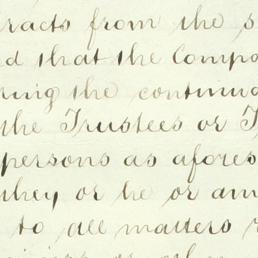 racts from the s
d that the Compa
ring the continu
the Trustees or T
persons as afores
they or he or an
to all matters